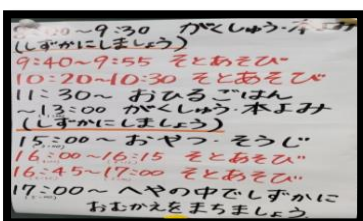 ~9:30 がくしゅう・本よみ
(しずかにしましょう)
9:40~9:55 そとあそび
10:20~10:30 そとあそび
11:30~ おひるごはん
~13:00 がくしゅう・本よみ
(しずかにしましょう)
15:00~ おやつ・そうじ
16:00~16:15 そとあそび
16:45~17:00 そとあそび
17:00~ へやの中でしずかに
おむかえをまちましょう